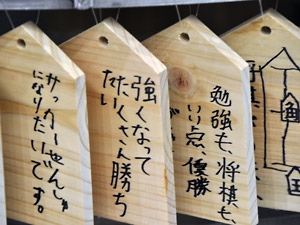 勉強も、将棋も、
いい点、優勝
が
強くなって
たくさん勝ち
たい
サッカーせんしゅ
になりたいです。